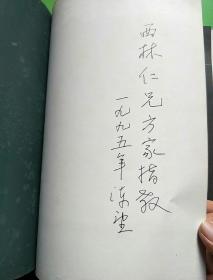 西林仁兄方家指教
一九九五年